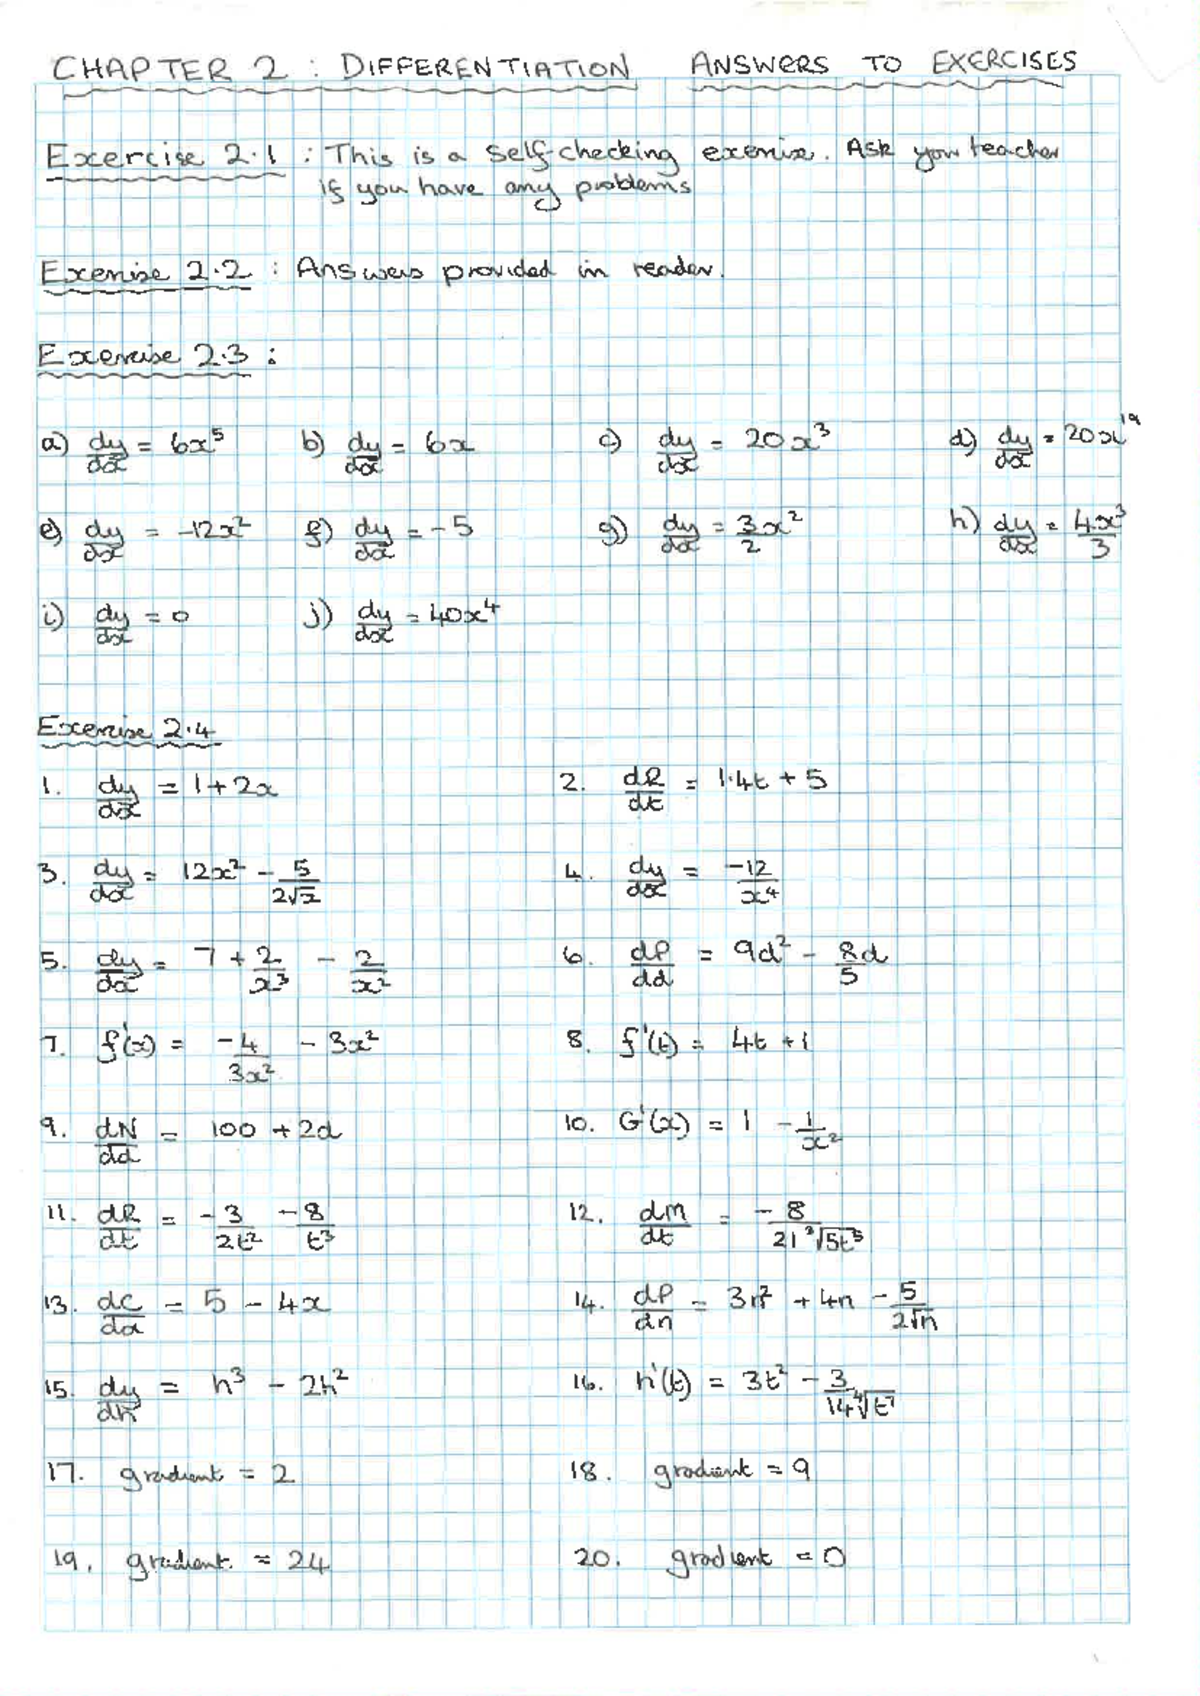 CHAPTER 2 : DIFFERENTIATION ANSWERS TO EXERCISES
Exercise 2.1 : This is a self-checking exercise. Ask your teacher
if you have any problems
Exercise 2.2 : Answers provided in reader.
Exercise 2.3 :
a) dy/dx = 6x⁵ b) dy/dx = 6x c) dy/dx = 20x³ d) dy/dx = 20x¹⁹
e) dy/dx = -12x² f) dy/dx = -5 g) dy/dx = 3/2 x² h) dy/dx = 4x³/3
i) dy/dx = 0 j) dy/dx = 40x⁴
Exercise 2.4
1. dy/dx = 1 + 2x 2. dR/dt = 1.4t + 5
3. dy/dx = 12x² - 5/2√x 4. dy/dx = -12/x⁴
5. dy/dx = 7 + 2/x³ - 2/x² 6. dP/dd = 9d² - 8d/5
7. f'(x) = -4/3x² - 3x² 8. f'(t) = 4t + 1
9. dN/dd = 100 + 2d 10. G'(x) = 1 - 1/x²
11. dR/dt = -3/2t² - 8/t³ 12. dM/dt = -8/21 ³√5t⁵
13. dC/dx = 5 - 4x 14. dP/dn = 3n² + 4n - 5/2√n
15. dy/dh = h³ - 2h² 16. h'(t) = 3t² - 3/14 ⁴√t⁷
17. gradient = 2 18. gradient = 9
19. gradient = 24 20. gradient = 0